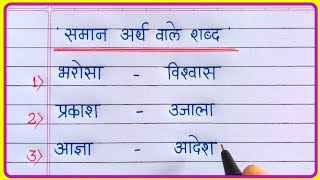 'समान अर्थ वाले शब्द'
1) भरोसा - विश्वास
2) प्रकाश - उजाला
3) आज्ञा - आदेश